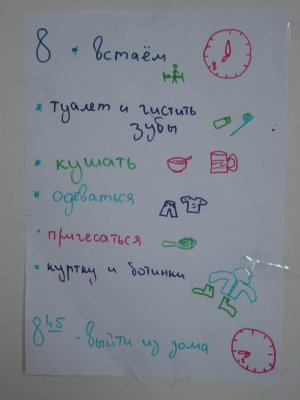 8 * встаём
* туалет и чистить
зубы
* кушать
* одеваться
* причесаться
* куртку и ботинки
8 45 - выйти из дома